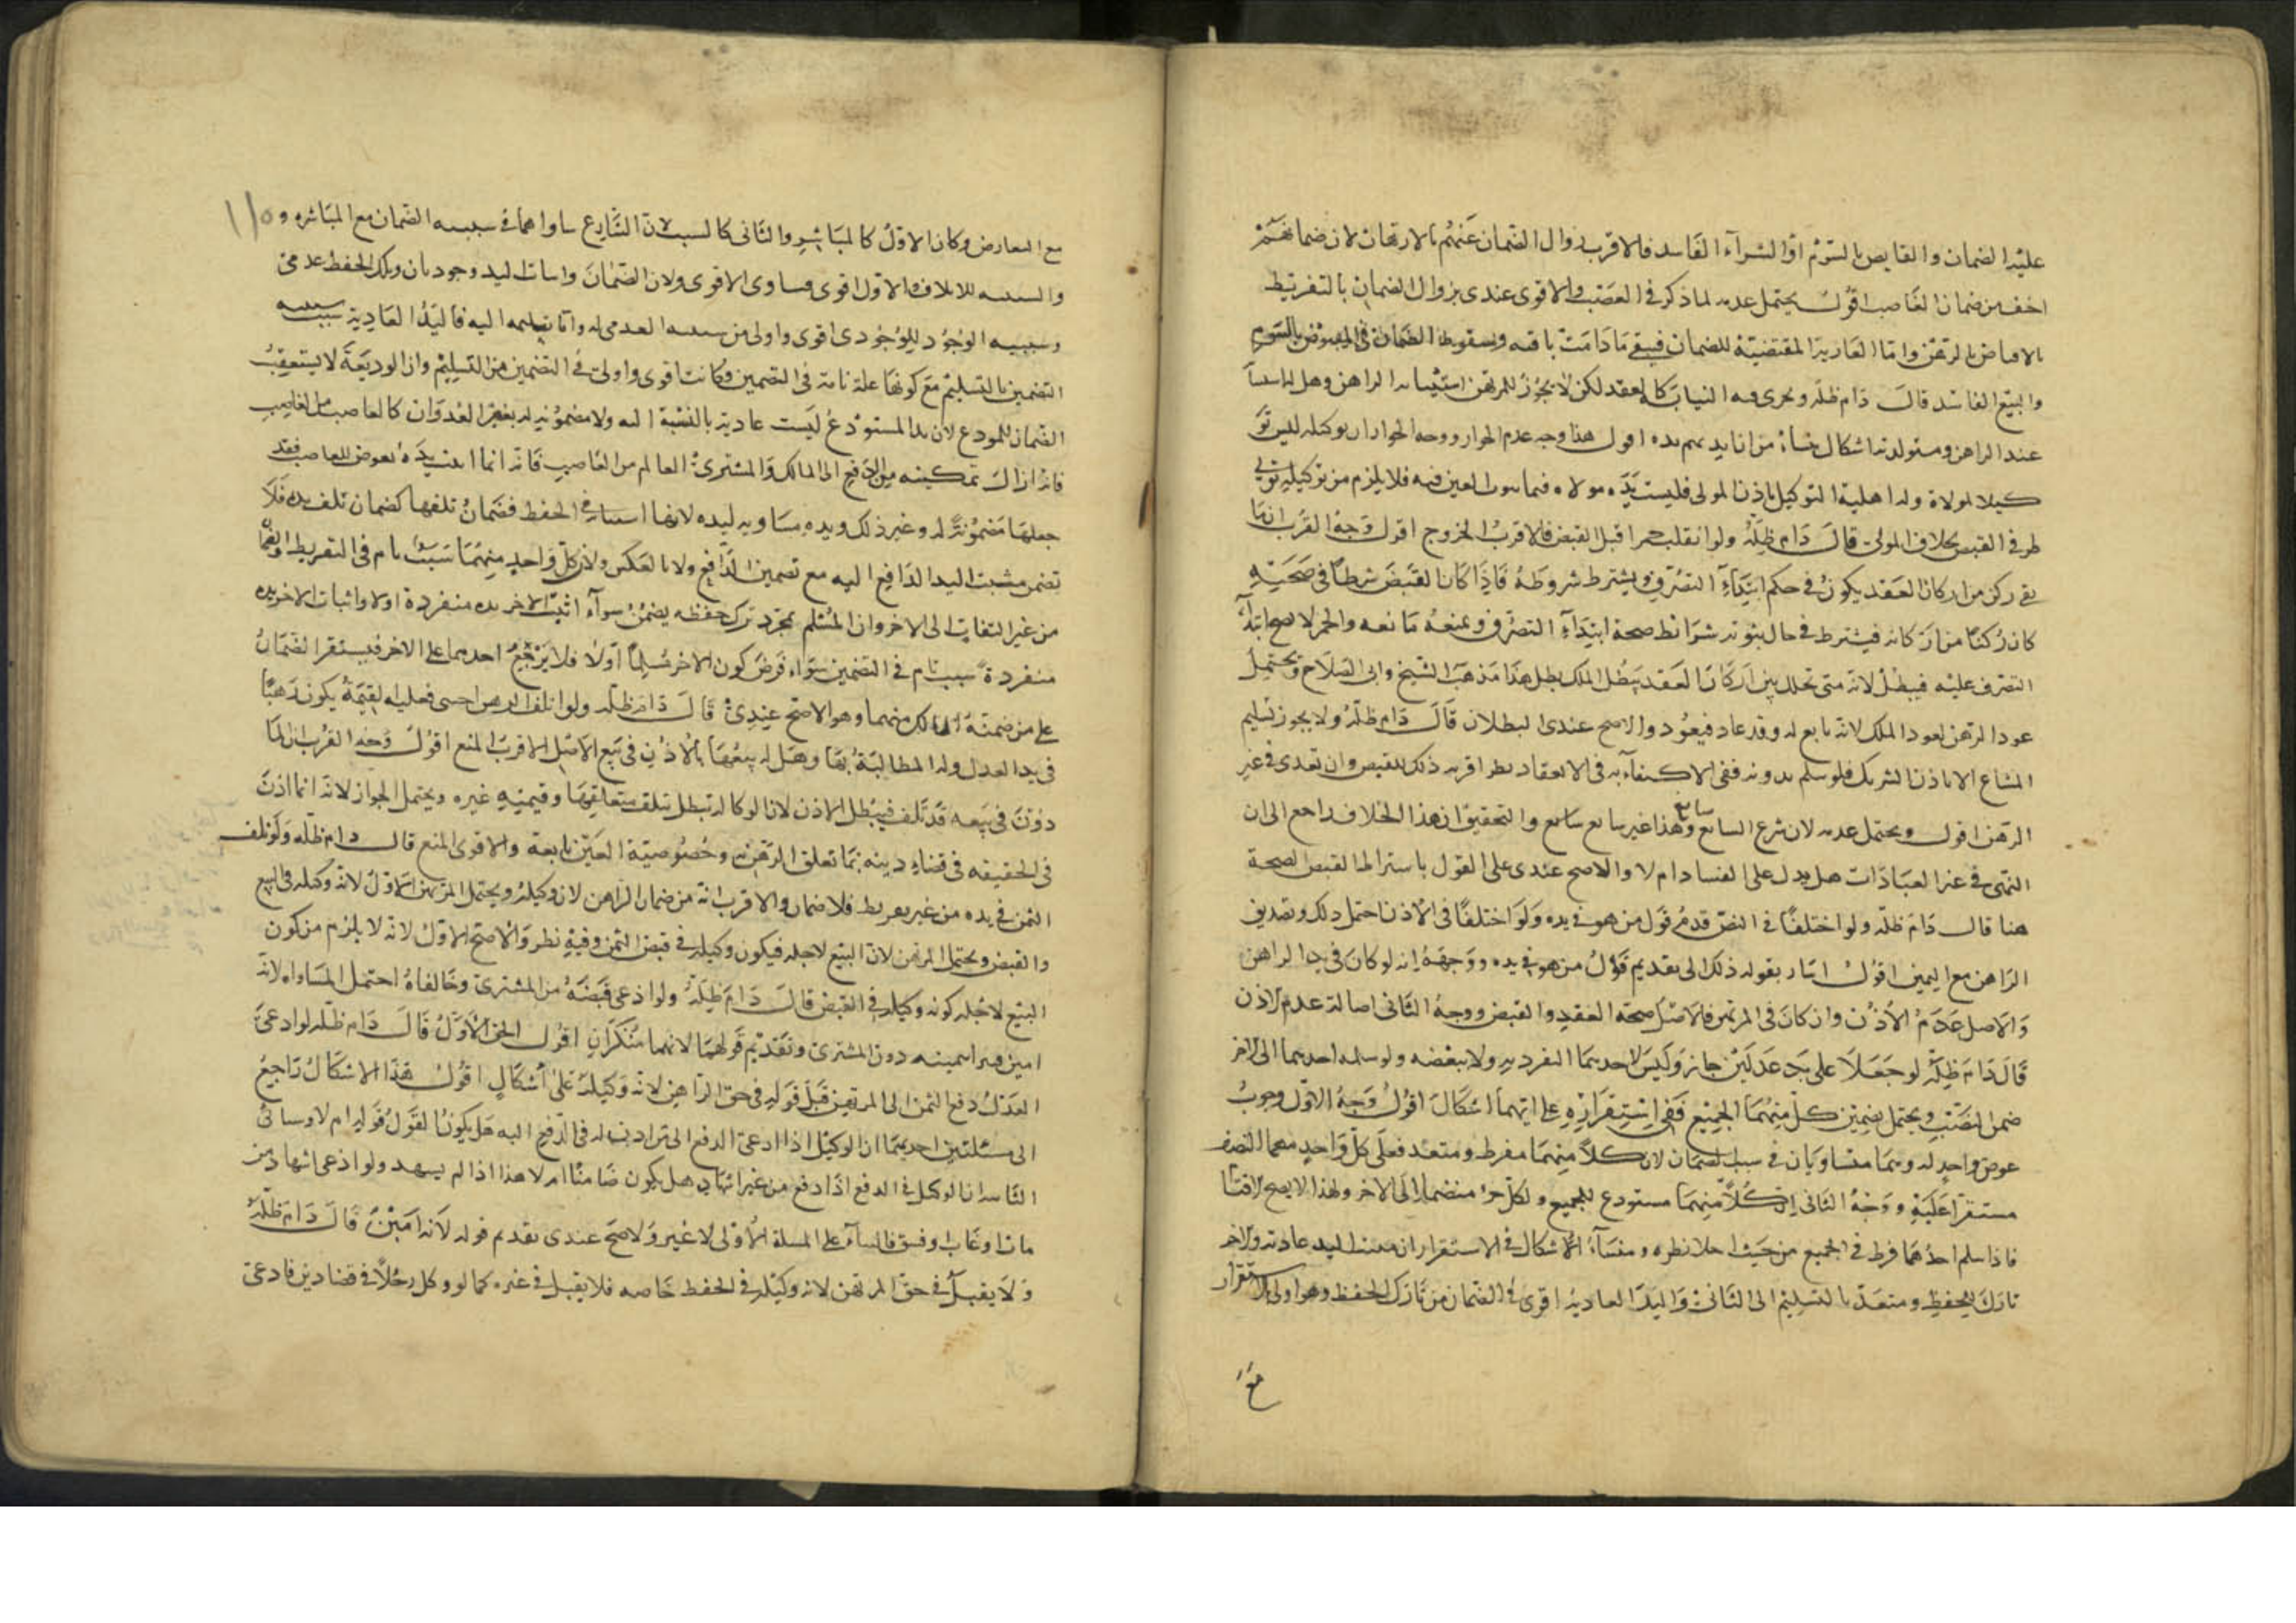 عليه الضمان والقابض بالسوم او الشراء الفاسد فالاقرب زوال الضمان عنهم بالارتهان لان ضمانهم
اخف من ضمان الغاصب اقول يحتمل عدمه لما ذكر في الغصب والاقوى عندي زوال الضمان بالتفريط
المقتضية للضمان فيبقى ما دامت باقية وبسقوط الضمان في المقبوض بالسوم
والبيع الفاسد قال دام ظله ويجرى فيه النيابة كالعقد لكن لا يجوز للمرتهن استنابة الراهن وهل له استنابة
عبد الراهن ومستولدته اشكال ينشأ من ان ايديهم يده اقول هذا وجه عدم الجواز ووجه الجواز ان توكيله ليس تو
كيلا لمولاه وله اهلية التوكيل باذن المولى فليست يده يد مولاه فيما العين فيه فلا يلزم من توكيله تولى
طرفي القبض بخلاف المولى قال دام ظله ولو انقلب خمرا قبل القبض فالاقرب الخروج اقول وجه القرب ان ما
بقي ركن من اركان العقد يكون في حكم ابتداء التصرف ويشترط شروطه فاذا كان القبض شرطا في صحته
كان ركنا من اركانه فيشترط في حال ثبوته شرائط صحة ابتداء التصرف ويمنعه مانعه والخمر لا يصح ابتداء
التصرف عليه فيبطل لانه متى تخلل بين اركان العقد مبطل الملك بطل هذا مذهب الشيخ وابى الصلاح ويحتمل
عود الرهن لعود الملك لانه تابع له وقد عاد فيعود والاصح عندي البطلان قال دام ظله ولا يجوز تسليم
المشاع الا باذن الشريك فلو سلم بدونه ففي الاكتفاء به في الانعقاد نظر اقربه ذلك للقبض وان تعدى في غير
الرهن اقول ويحتمل عدمه لان شرع السائغ سائغ وهذا غير سائغ والتحقيق ان هذا الخلاف راجع الى ان
النهى في غير العبادات هل يدل على الفساد ام لا والاصح عندي على القول باشتراط القبض الصحة
هنا قال دام ظله ولو اختلفا في القبض قدم قول من هو في يده ولو اختلفا في الاذن احتمل ذلك وتصديق
الراهن مع اليمين اقول اشار بقوله ذلك الى تقديم قول من هو في يده ووجهه انه لو كان في يد الراهن
والاصل عدم الاذن وان كان في المرتهن فالاصل صحة العقد والقبض ووجه الثاني اصالة عدم الاذن
قال دام ظله لو جعلا على يد عدلين جاز وليس لاحدهما التفرد به ولا ببعضه ولو سلمه احدهما الى الاخر
ضمن النصف ويحتمل تضمين كل منهما الجميع ففي استقراره على ايهما اشكال اقول وجه الاول وجوب
عوض واحد له وهما متساويان في سبب الضمان لان كلا منهما مفرط ومتعد فعلى كل واحد منهما النصف
مستقرا عليه ووجه الثاني ان كلا منهما مستودع للجميع ولكل جزء منضما الى الاخر ولهذا لا يصح الاقتسام
فاذا سلم احدهما فرط في الجميع من حيث اخلا نظره ومنشأ الاشكال في الاستقرار ان مثبت اليد عادية والاخر
تارك للحفظ ومتعد بالتسليم الى الثاني واليد العادية اقوى في الضمان من تارك الحفظ وهو اولى بالاستقرار
مع
١١٥
مع التعارض وكان الاول كالمباشر والثاني كالسبب لان الشارع ساواهما في سببية الضمان مع المباشرة و
والسببية للاتلاف فالاول اقوى ومساوى الاقوى ولان الضمان واثبات اليد وجوديان وترك الحفظ عدمي
وسببية الوجود للوجودى اقوى واولى من سببية العدمي له واما بتسليمه اليه فاليد العادية سببية
التضمين بالتسليم مع كونها علة تامة في التضمين وكانت اقوى واولى في التضمين من التسليم وان الوديعة لا يستعقب
الضمان للمودع لان يد المستودع ليست عادية بالنسبة اليه ولا مضمونة له بغير العدوان كالغاصب مثل الغاصب
فانه ازال تمكينه من الدفع الى المالك والمشترى العالم من الغاصب فانه انما اثبت يده بعوض للغاصب فقد
جعلها مضمونة له وغير ذلك ويده مساوية ليده لانهما في الحفظ فضمان تلفها كضمان تلف يده فلا
تضمن مثبت اليد الدافع اليه مع تضمين الدافع ولا بالعكس ولان كل واحد منهما سبب تام في التفريط والضمان
من غير التفات الى الاخر وان المسلم بمجرد ترك حفظه يضمن سواء اثبت الاخر يده منفردة او لا واثبات الاخر يده
منفردة سبب تام في التضمين سواء فرض كون الاخر مسلما او لا فلا يرجع احدهما على الاخر فيستقر الضمان
على من ضمنه المالك منهما وهو الاصح عندي قال دام ظله ولو اتلف الرهن اجنبي فعليه القيمة يكون رهنا
في يد العدل وله المطالبة بها وهل له بيعها بالاذن في بيع الاصل الاقرب المنع اقول وجه القرب ان الما
ذون في بيعه قد تلف فيبطل الاذن لان الوكالة تبطل بتلف متعلقها وقيمته غيره ويحتمل الجواز لانه انما اذن
في الحقيقة في قضاء دينه بما تعلق الرهن به وخصوصية العين تابعة والاقوى المنع قال دام ظله ولو تلف
الثمن في يده من غير تفريط فلا ضمان والاقرب انه من ضمان الراهن لانه وكيله ويحتمل المرتهن الاول لانه وكيله في البيع
والقبض ويحتمل المرتهن لان البيع لاجله فيكون وكيله في قبض الثمن وفيه نظر والاصح الاول لانه لا يلزم من كون
البيع لاجله كونه وكيله في القبض قال دام ظله ولو ادعى قبضه من المشترى وخالفاه احتمل المساواة لانه
امين دون المشترى وتقديم قولهما لانهما منكران اقول الحق الاول قال دام ظله لو ادعى
العدل دفع الثمن الى المرتهن قبل قوله في حق الراهن لانه وكيله على اشكال اقول هذا الاشكال راجع
الى مسئلتين احديهما ان الوكيل اذا ادعى الدفع الى من اذن له في الدفع اليه هل يكون القول قوله ام لا وسيأتى
الثانية ان الوكيل في الدفع اذا دفع من غير اشهاد هل يكون ضامنا ام لا هذا اذا لم يشهد ولو ادعى اشهاد من
مات او غاب او فسق فالبناء على المسئلة الاولى لا غير والاصح عندي تقديم قوله لانه امين قال دام ظله
ولا يقبل في حق المرتهن لانه وكيله في الحفظ خاصه فلا يقبل في غيره كما لو وكل رجلا في قضاء دين فادعى